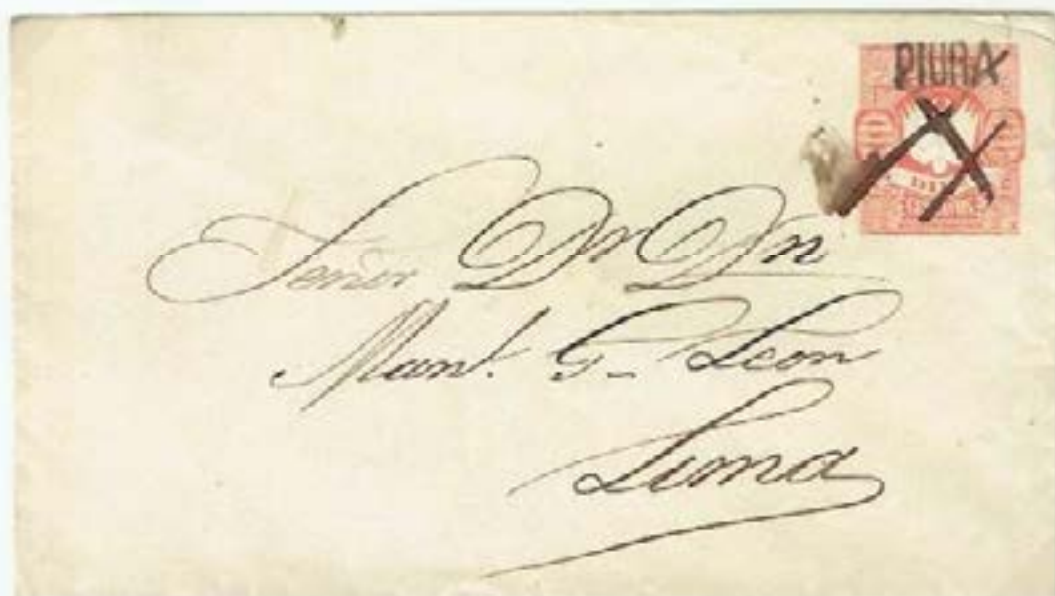 PIURA
10 10
Señor Dr Dn
Manl. G- Leon
Lima